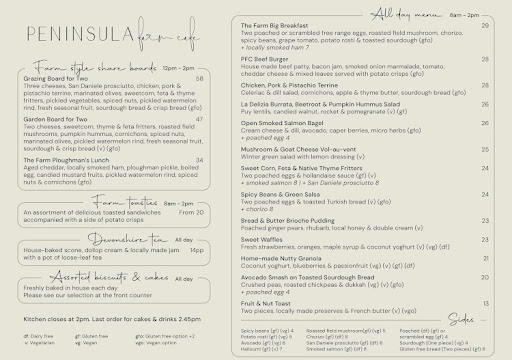 PENINSULA farm cafe
Farm style share boards 12pm - 2pm
Grazing Board for Two 58
Three cheeses, San Daniele prosciutto, chicken, pork &
pistachio terrine, marinated olives, sweetcorn, feta & thyme
fritters, pickled vegetables, spiced nuts, pickled watermelon
rind, fresh seasonal fruit, sourdough & crisp bread (gfo)
Garden Board for Two 47
Two cheeses, sweetcorn, thyme & feta fritters, roasted field
mushrooms, pumpkin hummus, cornichons, spiced nuts,
marinated olives, pickled watermelon rind, fresh seasonal fruit,
sourdough & crisp bread (v) (gfo)
The Farm Ploughman's Lunch 34
Aged cheddar, locally smoked ham, ploughman pickle, boiled
egg, candied mustard fruits, pickled watermelon rind, spiced
nuts & cornichons (gfo)
Farm toasties 8am - 2pm
An assortment of delicious toasted sandwiches From 20
accompanied with a side of potato crisps
Devonshire tea All day
House-baked scone, dollop cream & locally made jam 14pp
with a pot of loose-leaf tea
Assorted biscuits & cakes All day
Freshly baked in house each day
Please see our selection at the front counter
Kitchen closes at 2pm. Last order for cakes & drinks 2.45pm
df: Dairy free gf: Gluten free gfo: Gluten free option +2
v: Vegetarian vg: Vegan vgo: Vegan option
All day menu 8am - 2pm
The Farm Big Breakfast 29
Two poached or scrambled free range eggs, roasted field mushroom, chorizo,
spicy beans, grape tomato, potato rosti & toasted sourdough (gfo)
+ locally smoked ham 7
PFC Beef Burger 28
House made beef patty, bacon jam, smoked onion marmalade, tomato,
cheddar cheese & mixed leaves served with potato crisps (gfo)
Chicken, Pork & Pistachio Terrine 28
Celeriac & dill salad, cornichons, apple & thyme butter, sourdough bread (gfo)
La Delizia Burrata, Beetroot & Pumpkin Hummus Salad 26
Puy lentils, candied walnut, rocket & pomegranate (v) (gf)
Open Smoked Salmon Bagel 26
Cream cheese & dill, avocado, caper berries, micro herbs (gfo)
+ poached egg 4
Mushroom & Goat Cheese Vol-au-vent 25
Winter green salad with lemon dressing (v)
Sweet Corn, Feta & Native Thyme Fritters 24
Two poached eggs & hollandaise sauce (gf) (v)
+ smoked salmon 8 | + San Daniele prosciutto 8
Spicy Beans & Green Salsa 24
Two poached eggs & toasted Turkish bread (v) (gfo)
+ chorizo 8
Bread & Butter Brioche Pudding 23
Poached ginger pears, rhubarb, local honey & double cream (v)
Sweet Waffles 23
Fresh strawberries, oranges, maple syrup & coconut yoghurt (v) (vg) (df)
Home-made Nutty Granola 21
Coconut yoghurt, blueberries & passionfruit (vg) (v) (gf) (df)
Avocado Smash on Toasted Sourdough Bread 20
Crushed peas, roasted chickpeas & dukkah (vg) (v) (gfo)
+ poached egg 4
Fruit & Nut Toast 13
Two pieces, locally made preserves & French butter (v) (vgo)
Sides
Spicy beans (gf) (vg) 4 Roasted field mushroom(gf) (vg) 5 Poached (df) (gf) or
Potato rosti(gf) (vg) 5 Chorizo (gf) (df) 8 scrambled egg (gf) 4
Avocado (gf) (vg) 6 San Daniele prosciutto (gf) (df) 8 Sourdough (One piece) (vg) 4
Halloumi (gf) (v) 7 Smoked salmon (gf) (df) 8 Gluten free bread (Two pieces) (gf) 6